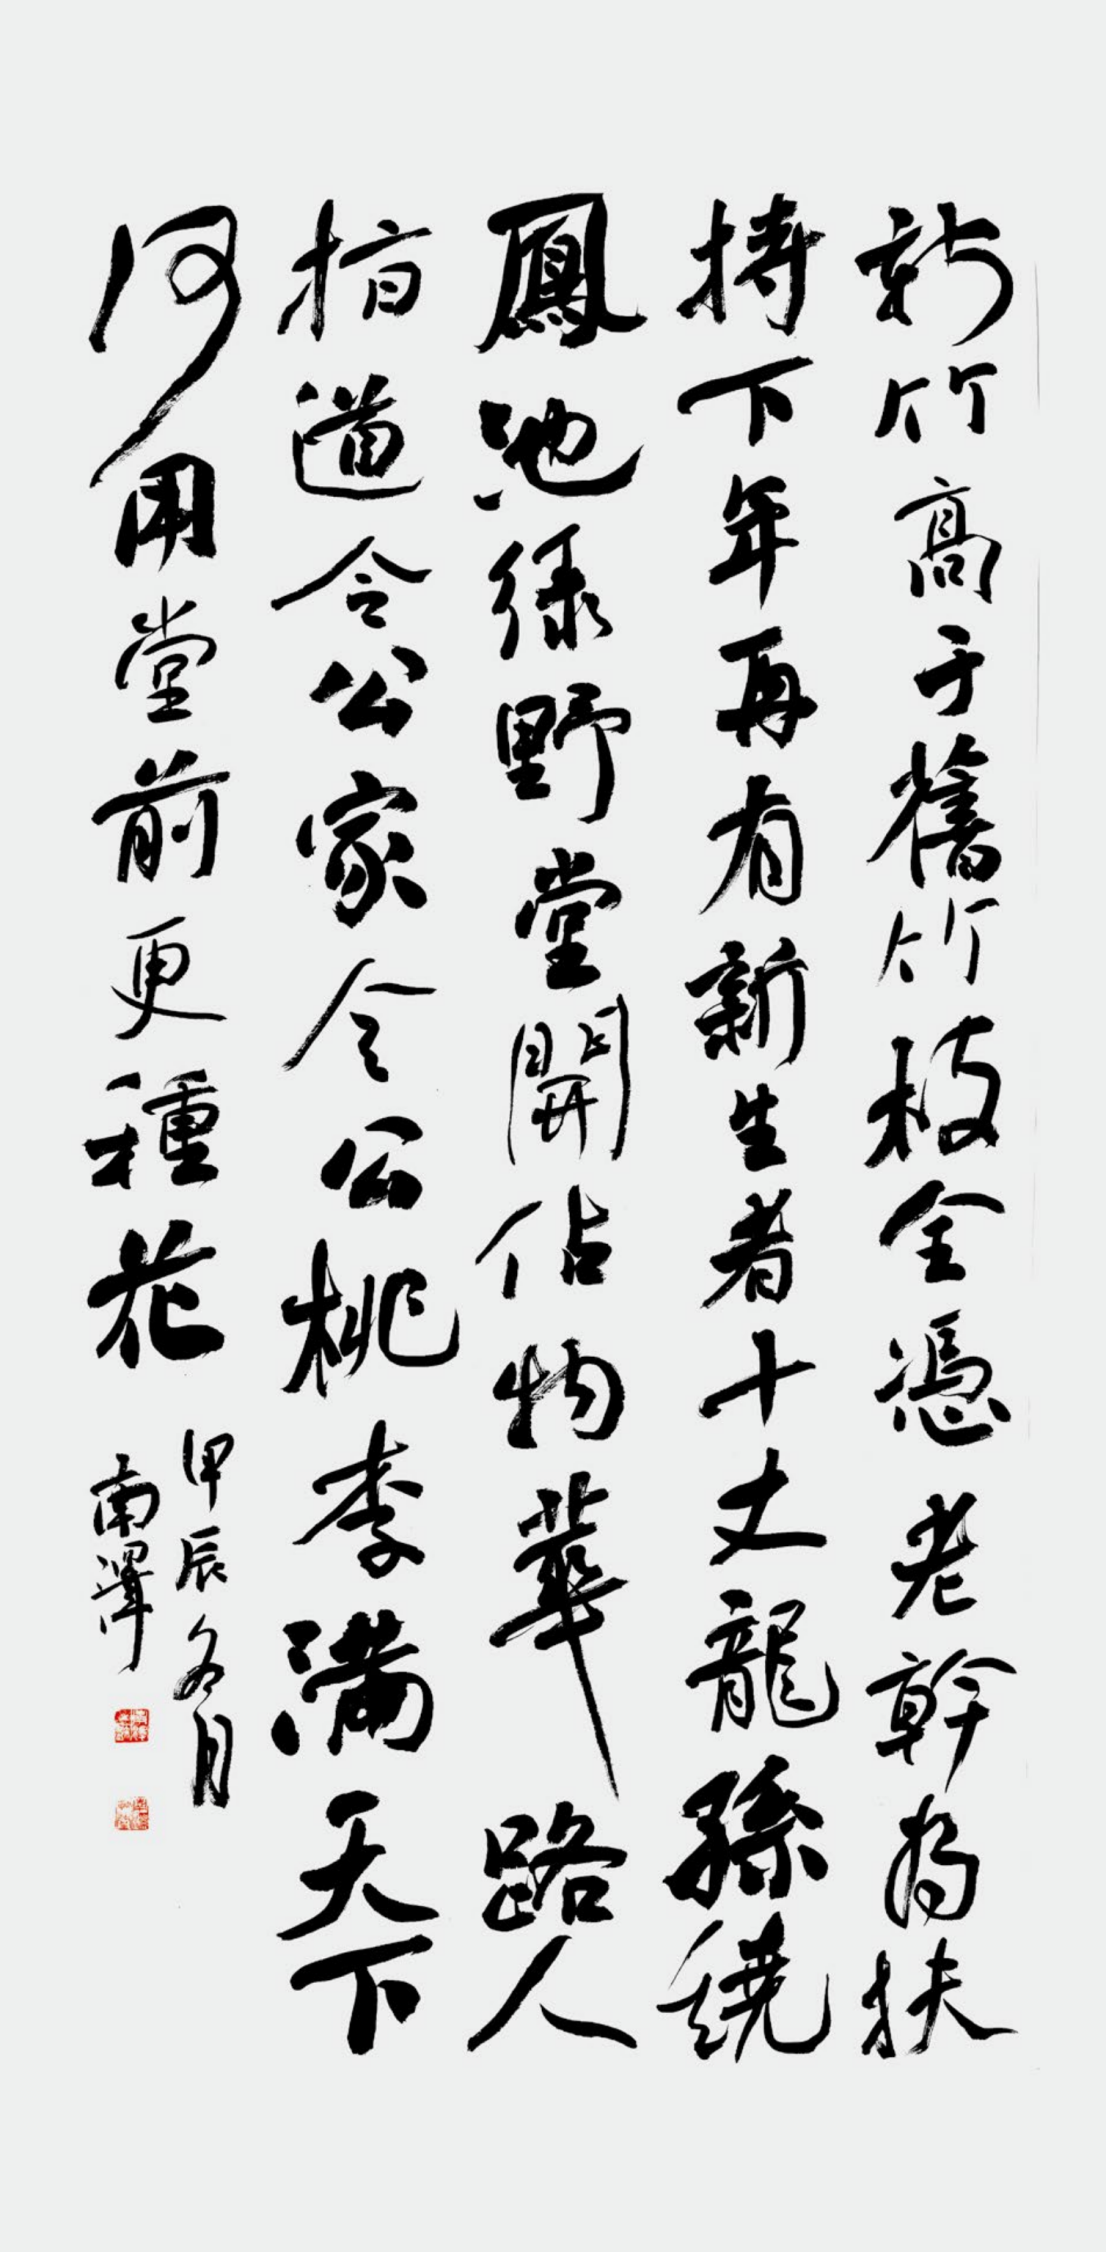 新竹高于舊竹枝全憑老幹為扶
持下年再有新生者十丈龍孫繞
鳳池緑野堂開佔物華路人
指道令公家令公桃李滿天下
何用堂前更種花
甲辰冬月
南澤